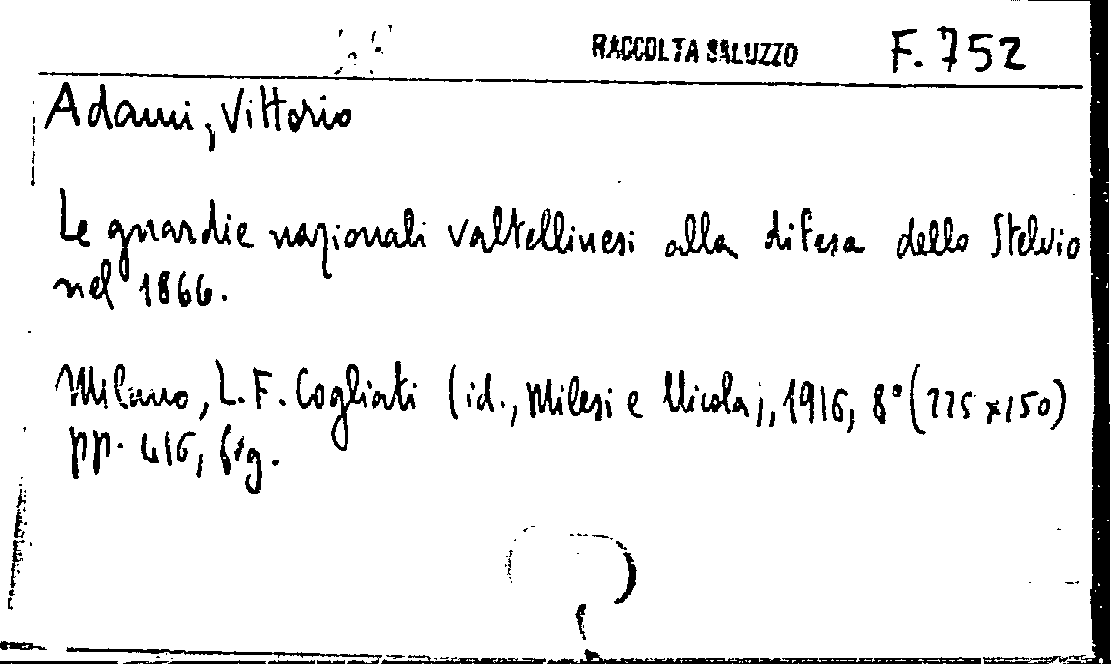 RACCOLTA SALUZZO F. 752
Adami, Vittorio
Le guardie nazionali valtellinesi alla difesa dello Stelvio
nel 1866.
Milano, L. F. Cogliati (id., Milesi e Nicola), 1916, 8° (225 x 150)
pp. 416, fig.